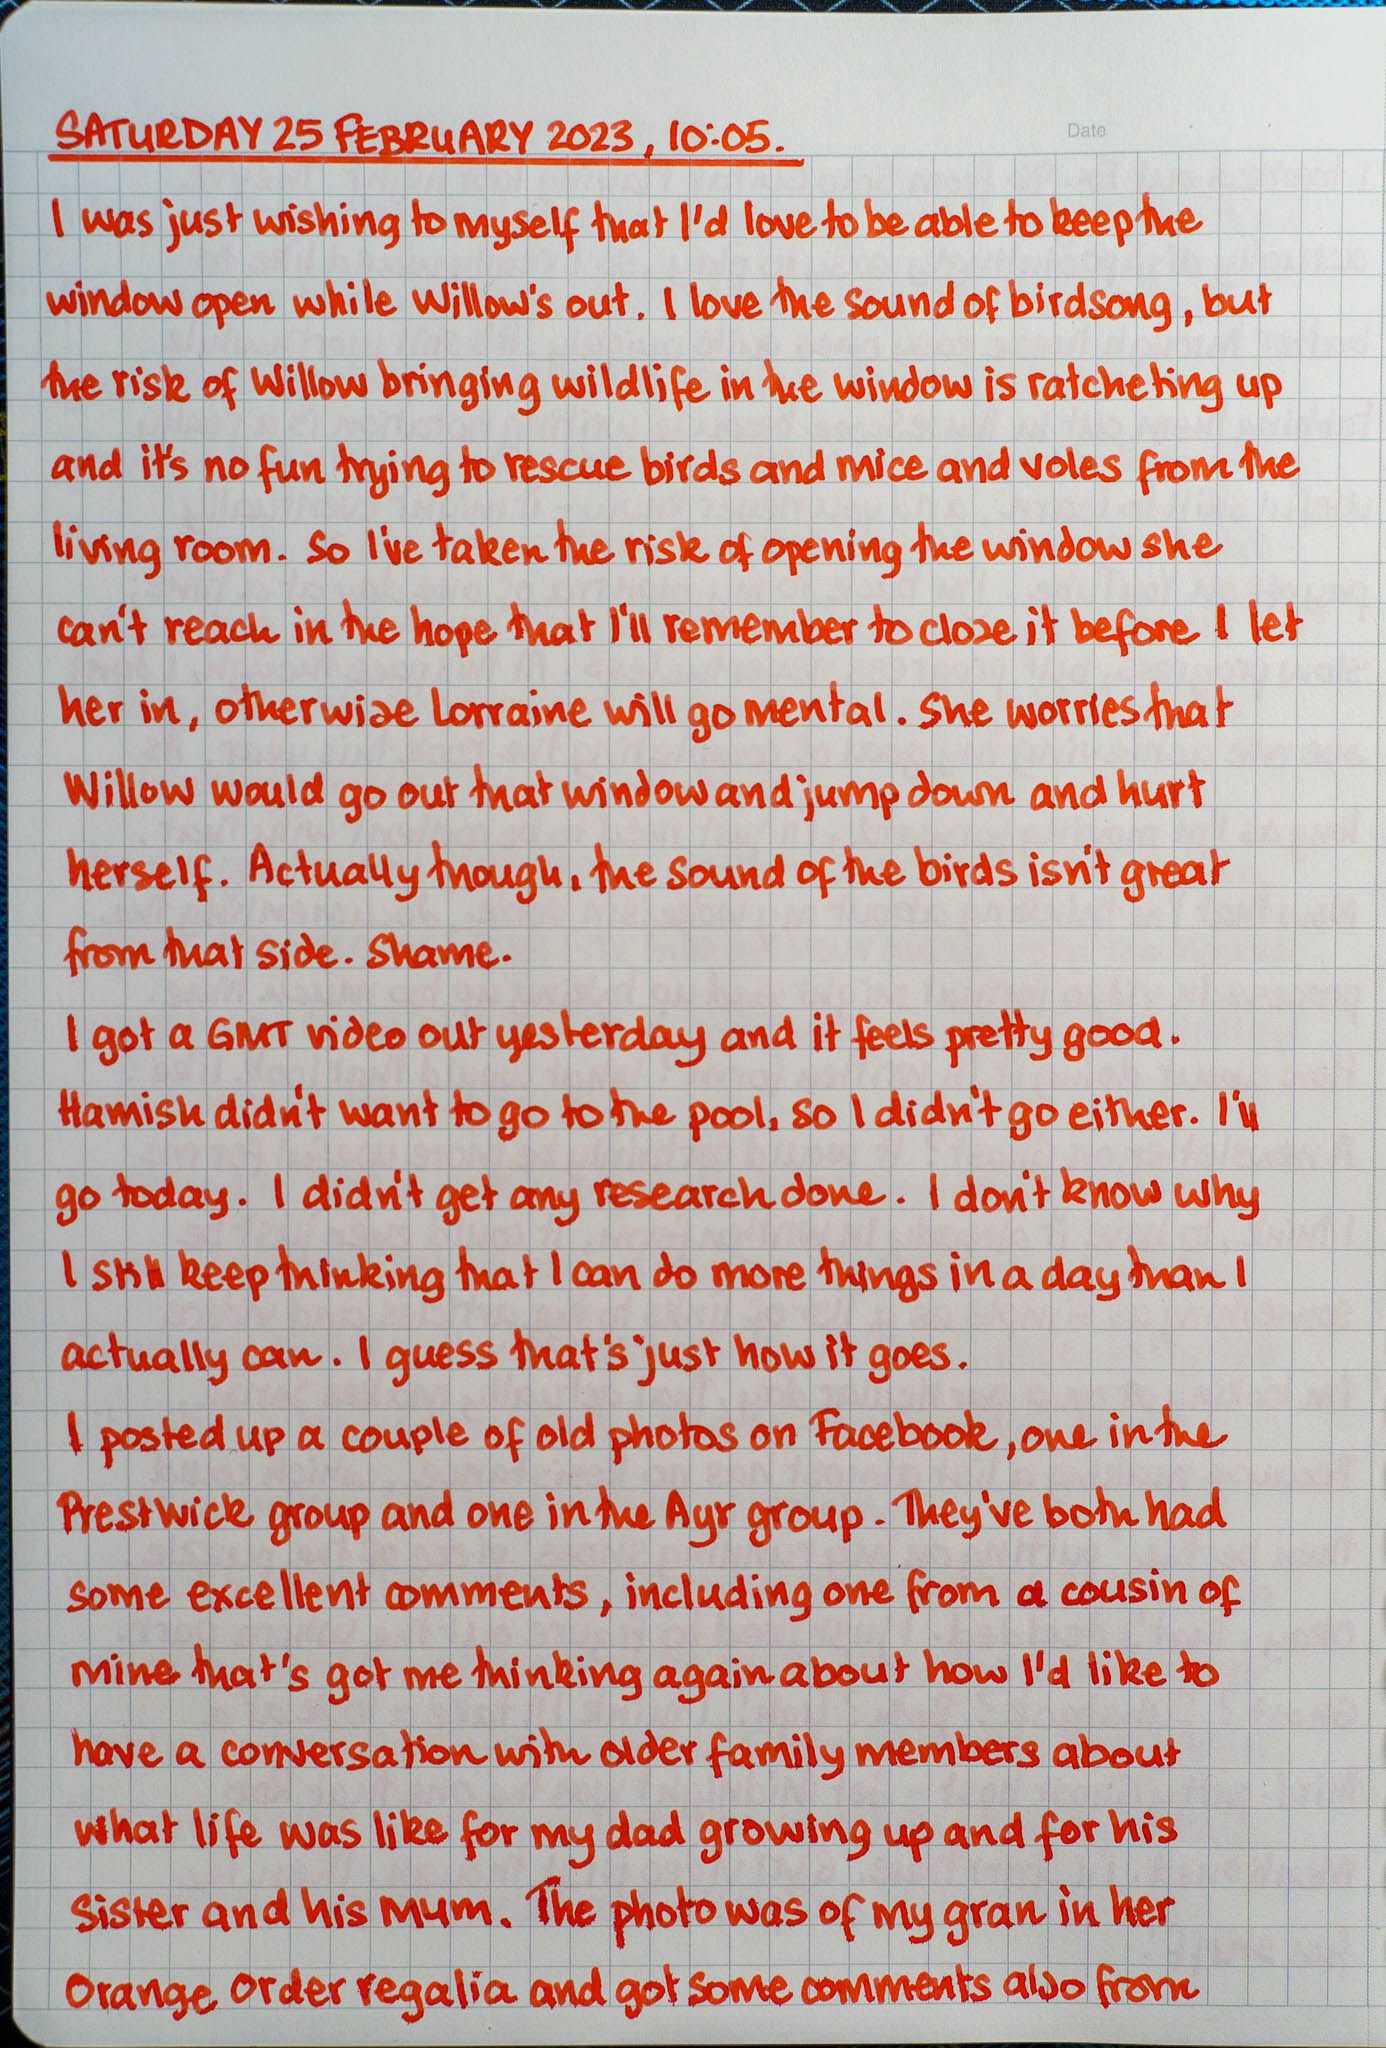 SATURDAY 25 FEBRUARY 2023, 10:05.
Date
I was just wishing to myself that I'd love to be able to keep the
window open while Willow's out. I love the sound of birdsong, but
the risk of Willow bringing wildlife in the window is ratcheting up
and it's no fun trying to rescue birds and mice and voles from the
living room. So I've taken the risk of opening the window she
can't reach in the hope that I'll remember to close it before I let
her in, otherwise Lorraine will go mental. She worries that
Willow would go out that window and jump down and hurt
herself. Actually though, the sound of the birds isn't great
from that side. Shame.
I got a GMT video out yesterday and it feels pretty good.
Hamish didn't want to go to the pool, so I didn't go either. I'll
go today. I didn't get any research done. I don't know why
I still keep thinking that I can do more things in a day than I
actually can. I guess that's just how it goes.
I posted up a couple of old photos on Facebook, one in the
Prestwick group and one in the Ayr group. They've both had
some excellent comments, including one from a cousin of
mine that's got me thinking again about how I'd like to
have a conversation with older family members about
what life was like for my dad growing up and for his
sister and his Mum. The photo was of my gran in her
Orange Order regalia and got some comments also from